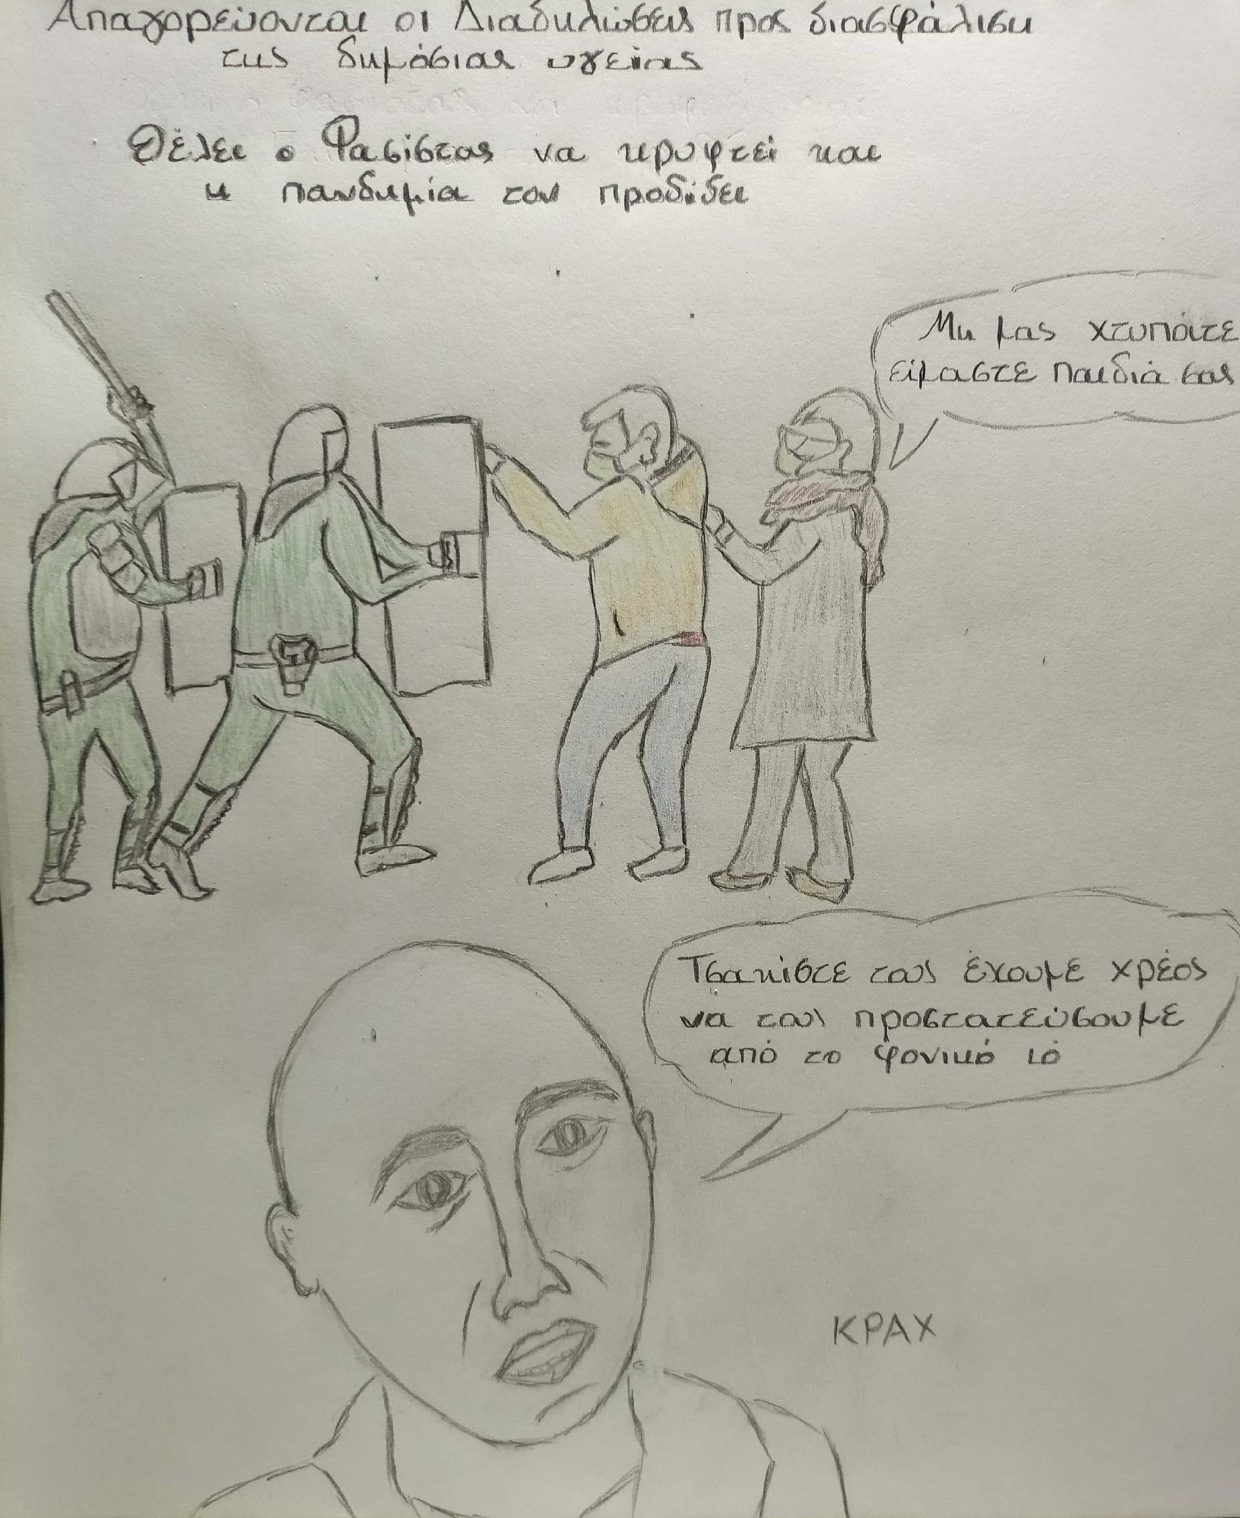 Απαγορεύονται οι Διαδηλώσεις προς διασφάλιση
της δημόσιας υγείας
Θέλει ο Φασίστας να κρυφτεί και
η πανδημία τον προδίδει
Μη μας χτυπάτε
είμαστε παιδιά σας
Τσακίστε τους έχουμε χρέος
να τους προστατεύσουμε
από το φονικό ιό
ΚΡΑΧ